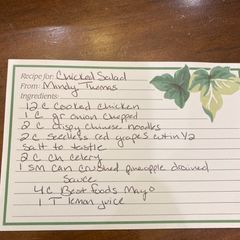 Recipe for: Chicked Salad
From: Mandy Thomas
Ingredients:
12 C cooked chicken
1 C gr onion chopped
2 C crispy chinese noodles
2 C seedless red grapes cut in 1/2
Salt to tastle
2 C ch celery
1 sm can crushed pineapple drained
Sauce
4 C Best foods Mayo
1 T lemon juice